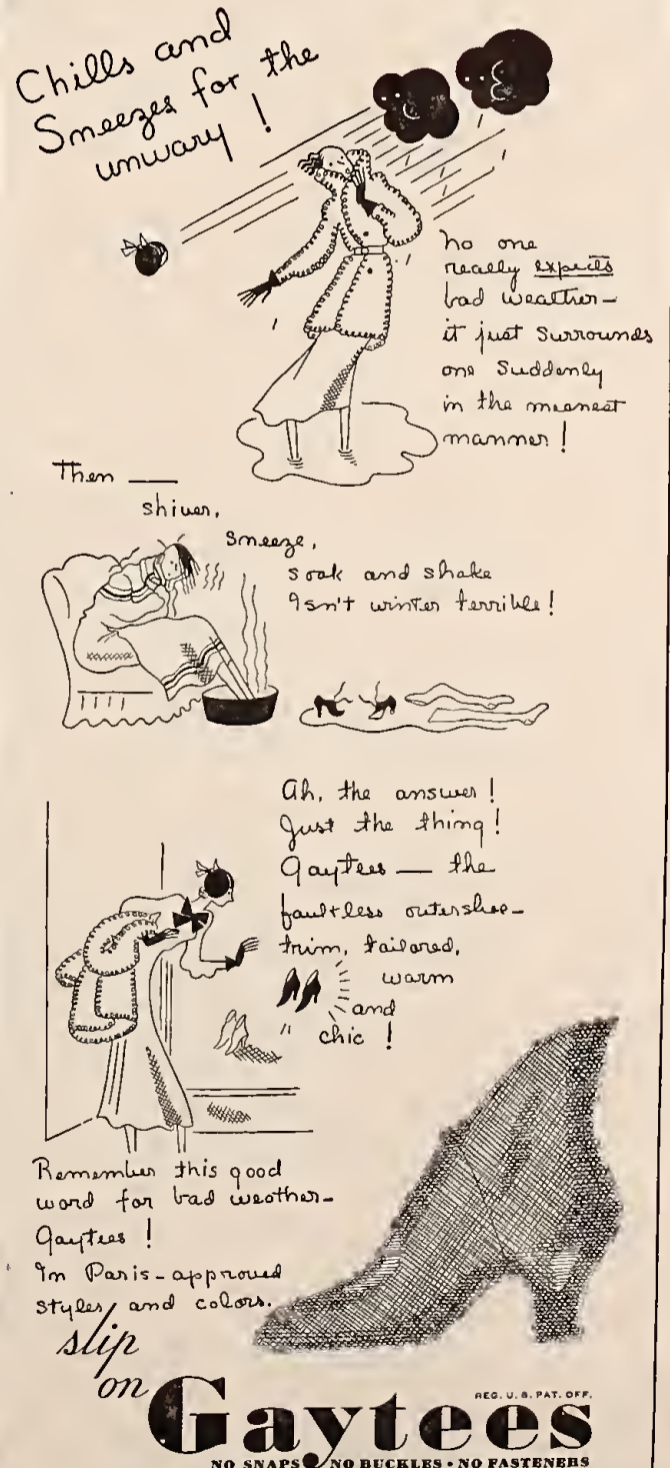 Chills and
Sneezes for the
unwary !
No one
really expects
bad weather—
it just surrounds
one suddenly
in the meanest
manner !
Then —
shiver,
sneeze,
soak and shake
Isn't winter terrible !
Ah, the answer !
Just the thing !
Gaytees — the
faultless outershoe—
trim, tailored,
warm
and
chic !
Remember this good
word for bad weather—
Gaytees !
In Paris-approved
styles and colors.
slip
on
REG. U. S. PAT. OFF.
Gaytees
NO SNAPS • NO BUCKLES • NO FASTENERS